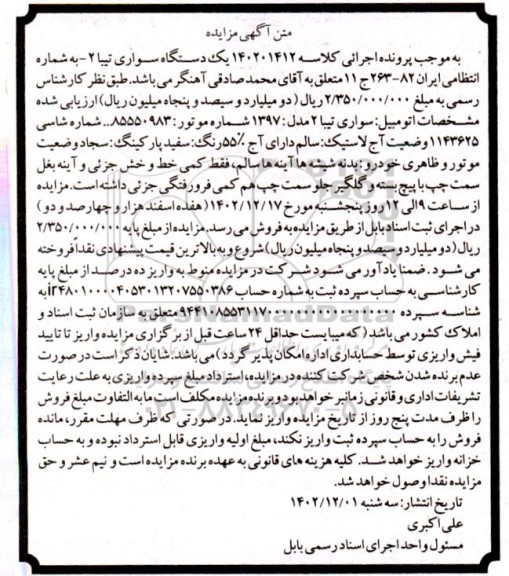 متن آگهی مزایده
به موجب پرونده اجرائی کلاسه ۱۴۰۲۰۱۴۱۲ یک دستگاه سواری تیبا ۲- به شماره
انتظامی ایران ۸۲-۲۶۳ ج ۱۱ متعلق به آقای محمد صادقی آهنگر می باشد. طبق نظر کارشناس
رسمی به مبلغ ۲/۳۵۰/۰۰۰/۰۰۰ ریال (دو میلیارد و سیصد و پنجاه میلیون ریال) ارزیابی شده
مشخصات اتومبیل: سواری تیبا ۲ مدل: ۱۳۹۷ شماره موتور: ۸۵۵۵۰۹۸۳... شماره شاسی
۱۱۴۳۶۲۵ وضعیت آج لاستیک: سالم دارای آج ۵۵٪ رنگ: سفید پارکینگ: سجاد وضعیت
موتور و ظاهری خودرو: بدنه شیشه ها آینه ها سالم، فقط کمی خط و خش جزئی و آینه بغل
سمت چپ با پیچ بسته و گلگیر جلو سمت چپ هم کمی فرورفتگی جزئی داشته است. مزایده
از ساعت ۹ الی ۱۲ روز پنجشنبه مورخ ۱۴۰۲/۱۲/۱۷ (هفده اسفند هزار و چهارصد و دو)
در اجرای ثبت اسناد بابل از طریق مزایده به فروش می رسد. مزایده از مبلغ پایه ۲/۳۵۰/۰۰۰/۰۰۰
ریال (دو میلیارد و سیصد و پنجاه میلیون ریال) شروع و به بالاترین قیمت پیشنهادی نقداً فروخته
می شود. ضمنا یادآور می شود شرکت در مزایده منوط به واریز ده درصد از مبلغ پایه
کارشناسی به حساب سپرده ثبت به شماره حساب ir۲۴۸۰۱۰۰۰۰۴۰۵۳۰۱۳۲۰۷۵۵۰۳۸۶ به
شناسه سپرده متعلق به سازمان ثبت اسناد و
املاک کشور می باشد (که میبایست حداقل ۲۴ ساعت قبل از برگزاری مزایده واریز تا تایید
فیش واریزی توسط حسابداری اداره امکان پذیر گردد) می باشد. شایان ذکر است در صورت
عدم برنده شدن شخص شرکت کننده در مزایده، استرداد مبلغ سپرده واریزی به علت رعایت
تشریفات اداری و قانونی زمانبر خواهد بود و برنده مزایده مکلف است ما به التفاوت مبلغ فروش
را ظرف مدت پنج روز از تاریخ مزایده واریز نماید. در صورتی که ظرف مهلت مقرر، مانده
فروش را به حساب سپرده ثبت واریز نکند، مبلغ اولیه واریزی قابل استرداد نبوده و به حساب
خزانه واریز خواهد شد. کلیه هزینه های قانونی به عهده برنده مزایده است و نیم عشر و حق
مزایده نقدا وصول خواهد شد.
تاریخ انتشار: سه شنبه ۱۴۰۲/۱۲/۰۱
علی اکبری
مسئول واحد اجرای اسناد رسمی بابل